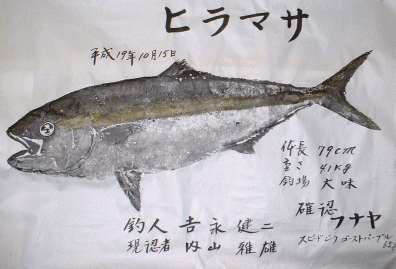 ヒラマサ
平成19年10月15日
体長 79cm
重さ 4.1Kg
釣場 大味
釣人 吉永健二
現認者 内山雅雄
確認 フナヤ
スピードジグ ゴーストパープル